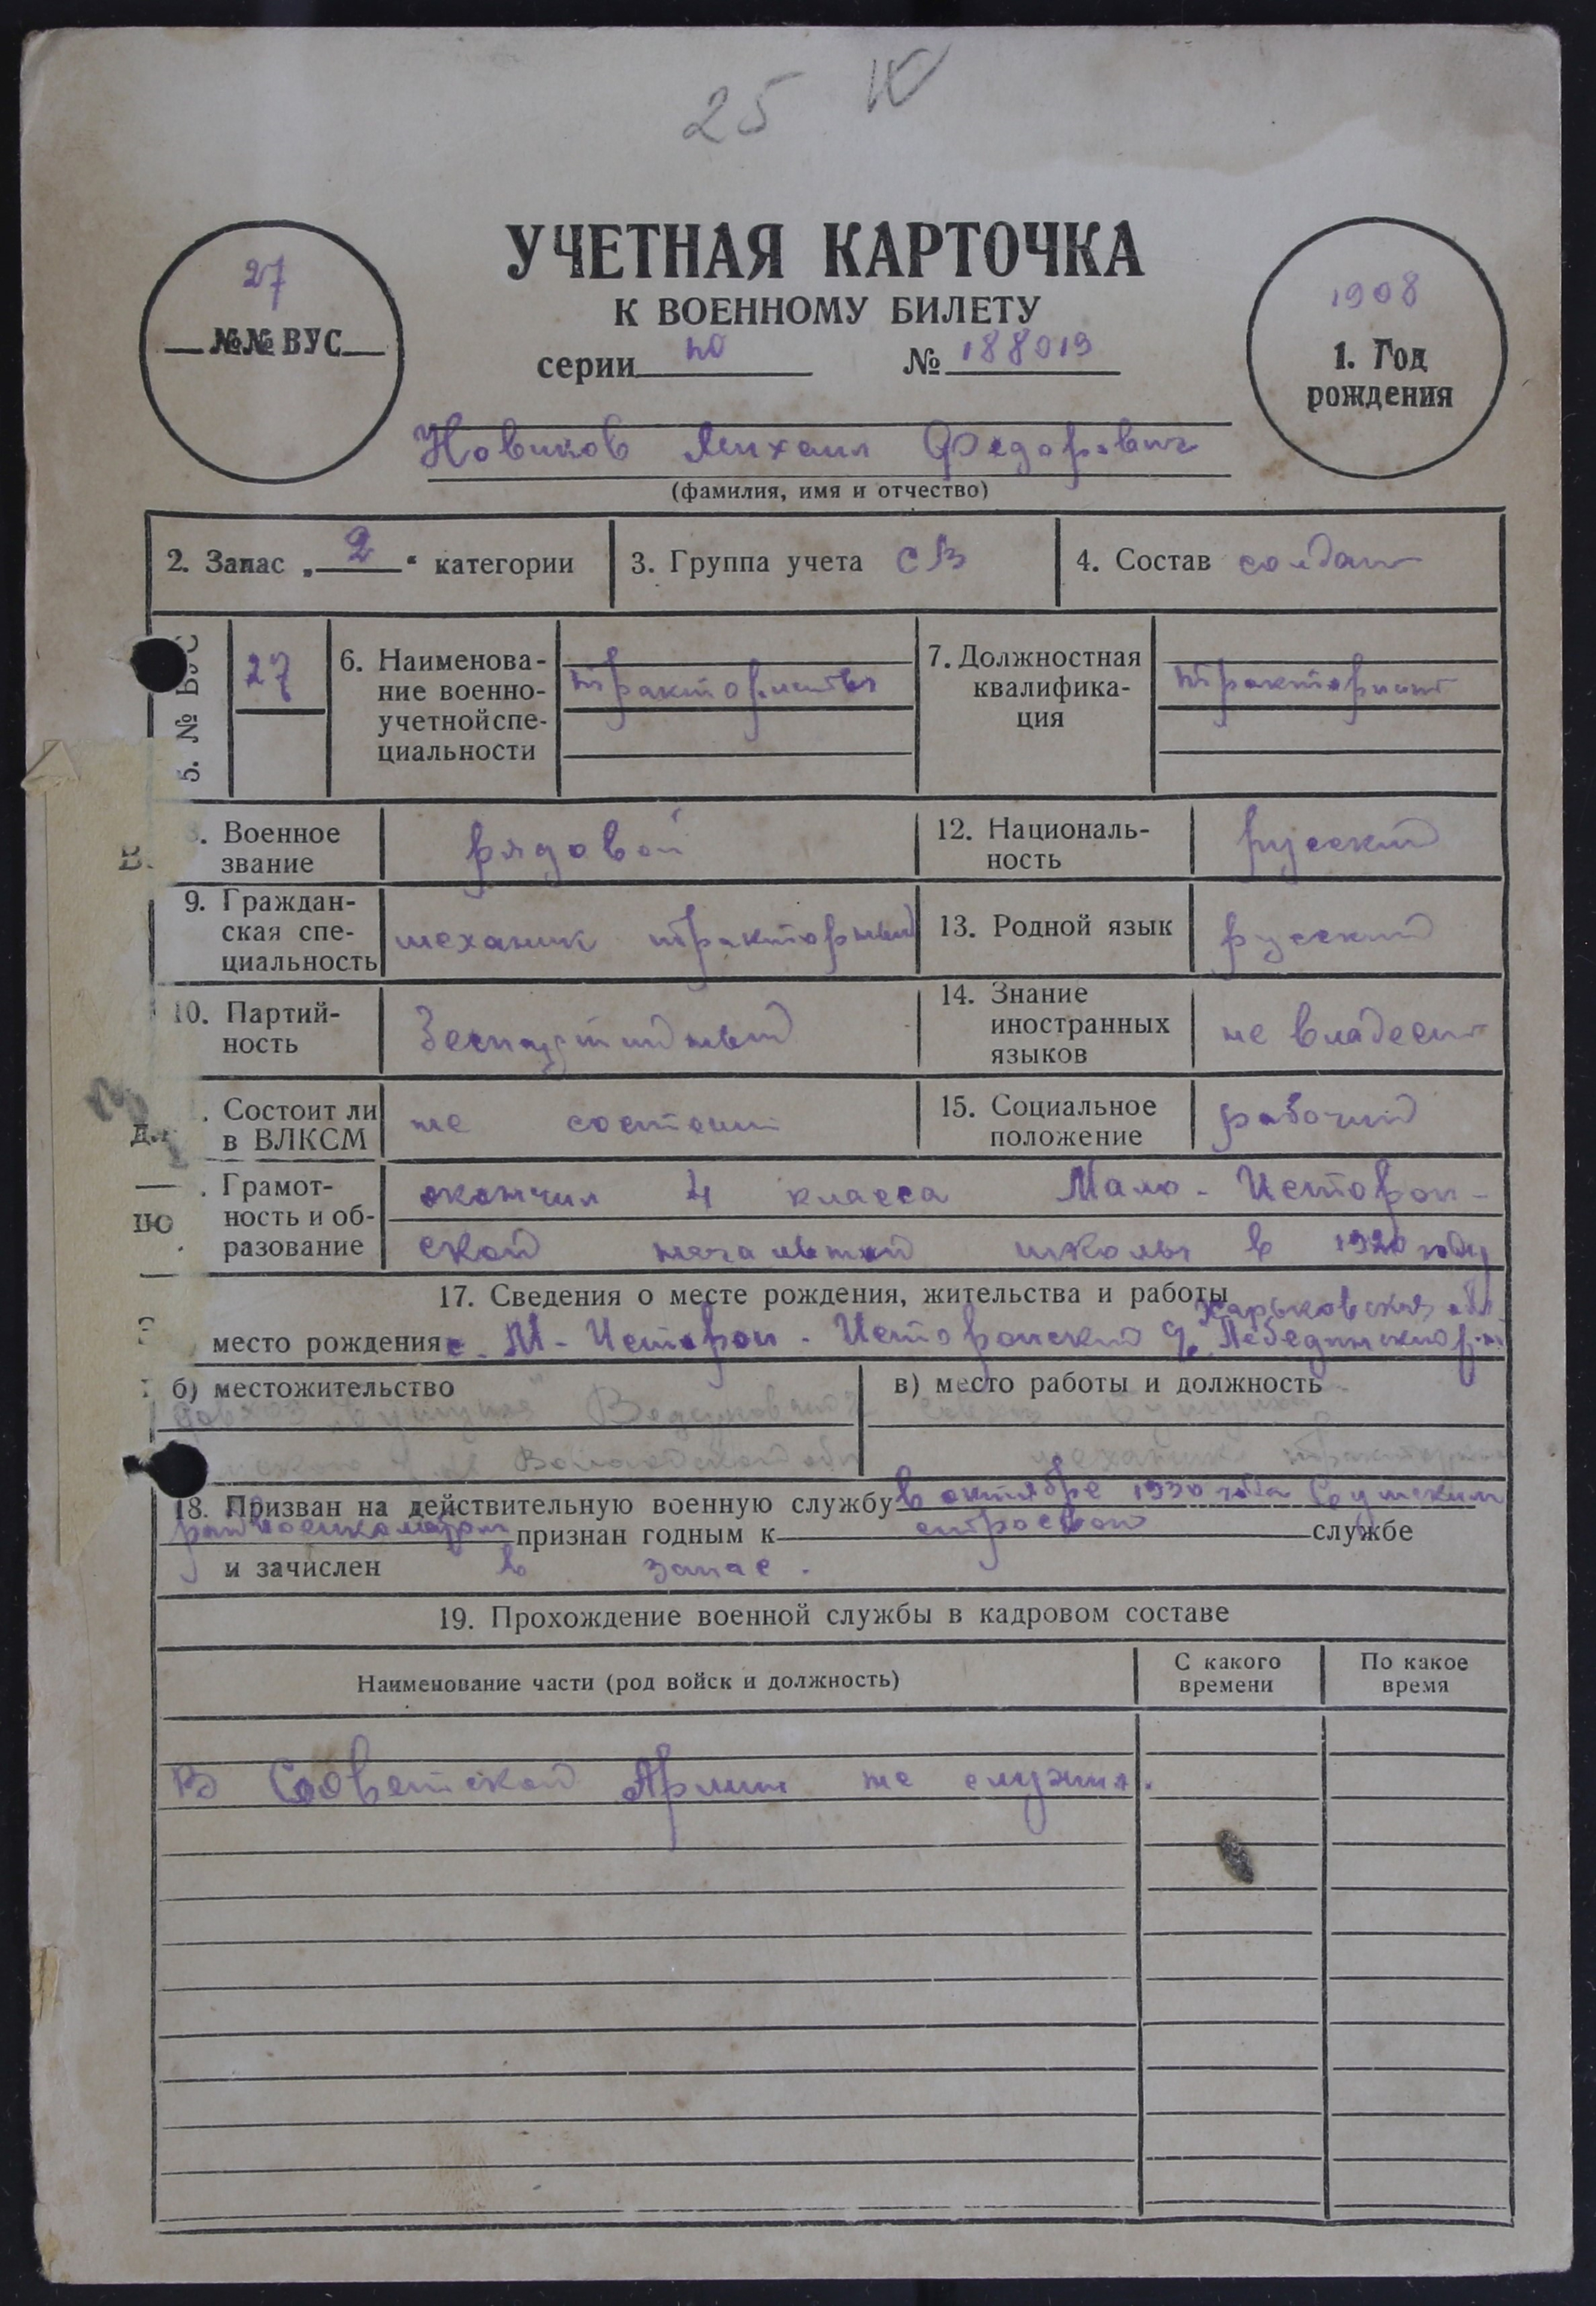 25 Ю
УЧЕТНАЯ КАРТОЧКА
К ВОЕННОМУ БИЛЕТУ
27
№№ ВУС
серии по № 188019
1908
1. Год
рождения
Новиков Михаил Федорович
(фамилия, имя и отчество)
2. Запас „ 2 “ категории
3. Группа учета СВ
4. Состав солдат
5. № ВУС
27
6. Наименова-
ние военно-
учетной спе-
циальности
трактористы
7. Должностная
квалифика-
ция
тракторист
Военное
звание
рядовой
12. Националь-
ность
русский
9. Граждан-
ская спе-
циальность
механик тракторный
13. Родной язык
русский
10. Партий-
ность
беспартийный
14. Знание
иностранных
языков
не владеет
Состоит ли
в ВЛКСМ
не состоит
15. Социальное
положение
рабочий
Грамот-
ность и об-
разование
окончил 4 класса Мало-Истороп-
ской начальной школы в 1920 году
17. Сведения о месте рождения, жительства и работы
Харьковская обл.
место рождения с. М-Истороп. Исторопский Лебединский р-н
б) местожительство
совхоз
Вологодской обл
в) место работы и должность
совхоз
механик
18. Призван на действительную военную службу в октябре 1930 года Сумским
райвоенкоматом признан годным к строевой службе
и зачислен в запас.
19. Прохождение военной службы в кадровом составе
Наименование части (род войск и должность)
С какого
времени
По какое
время
В Советской Армии не служил.